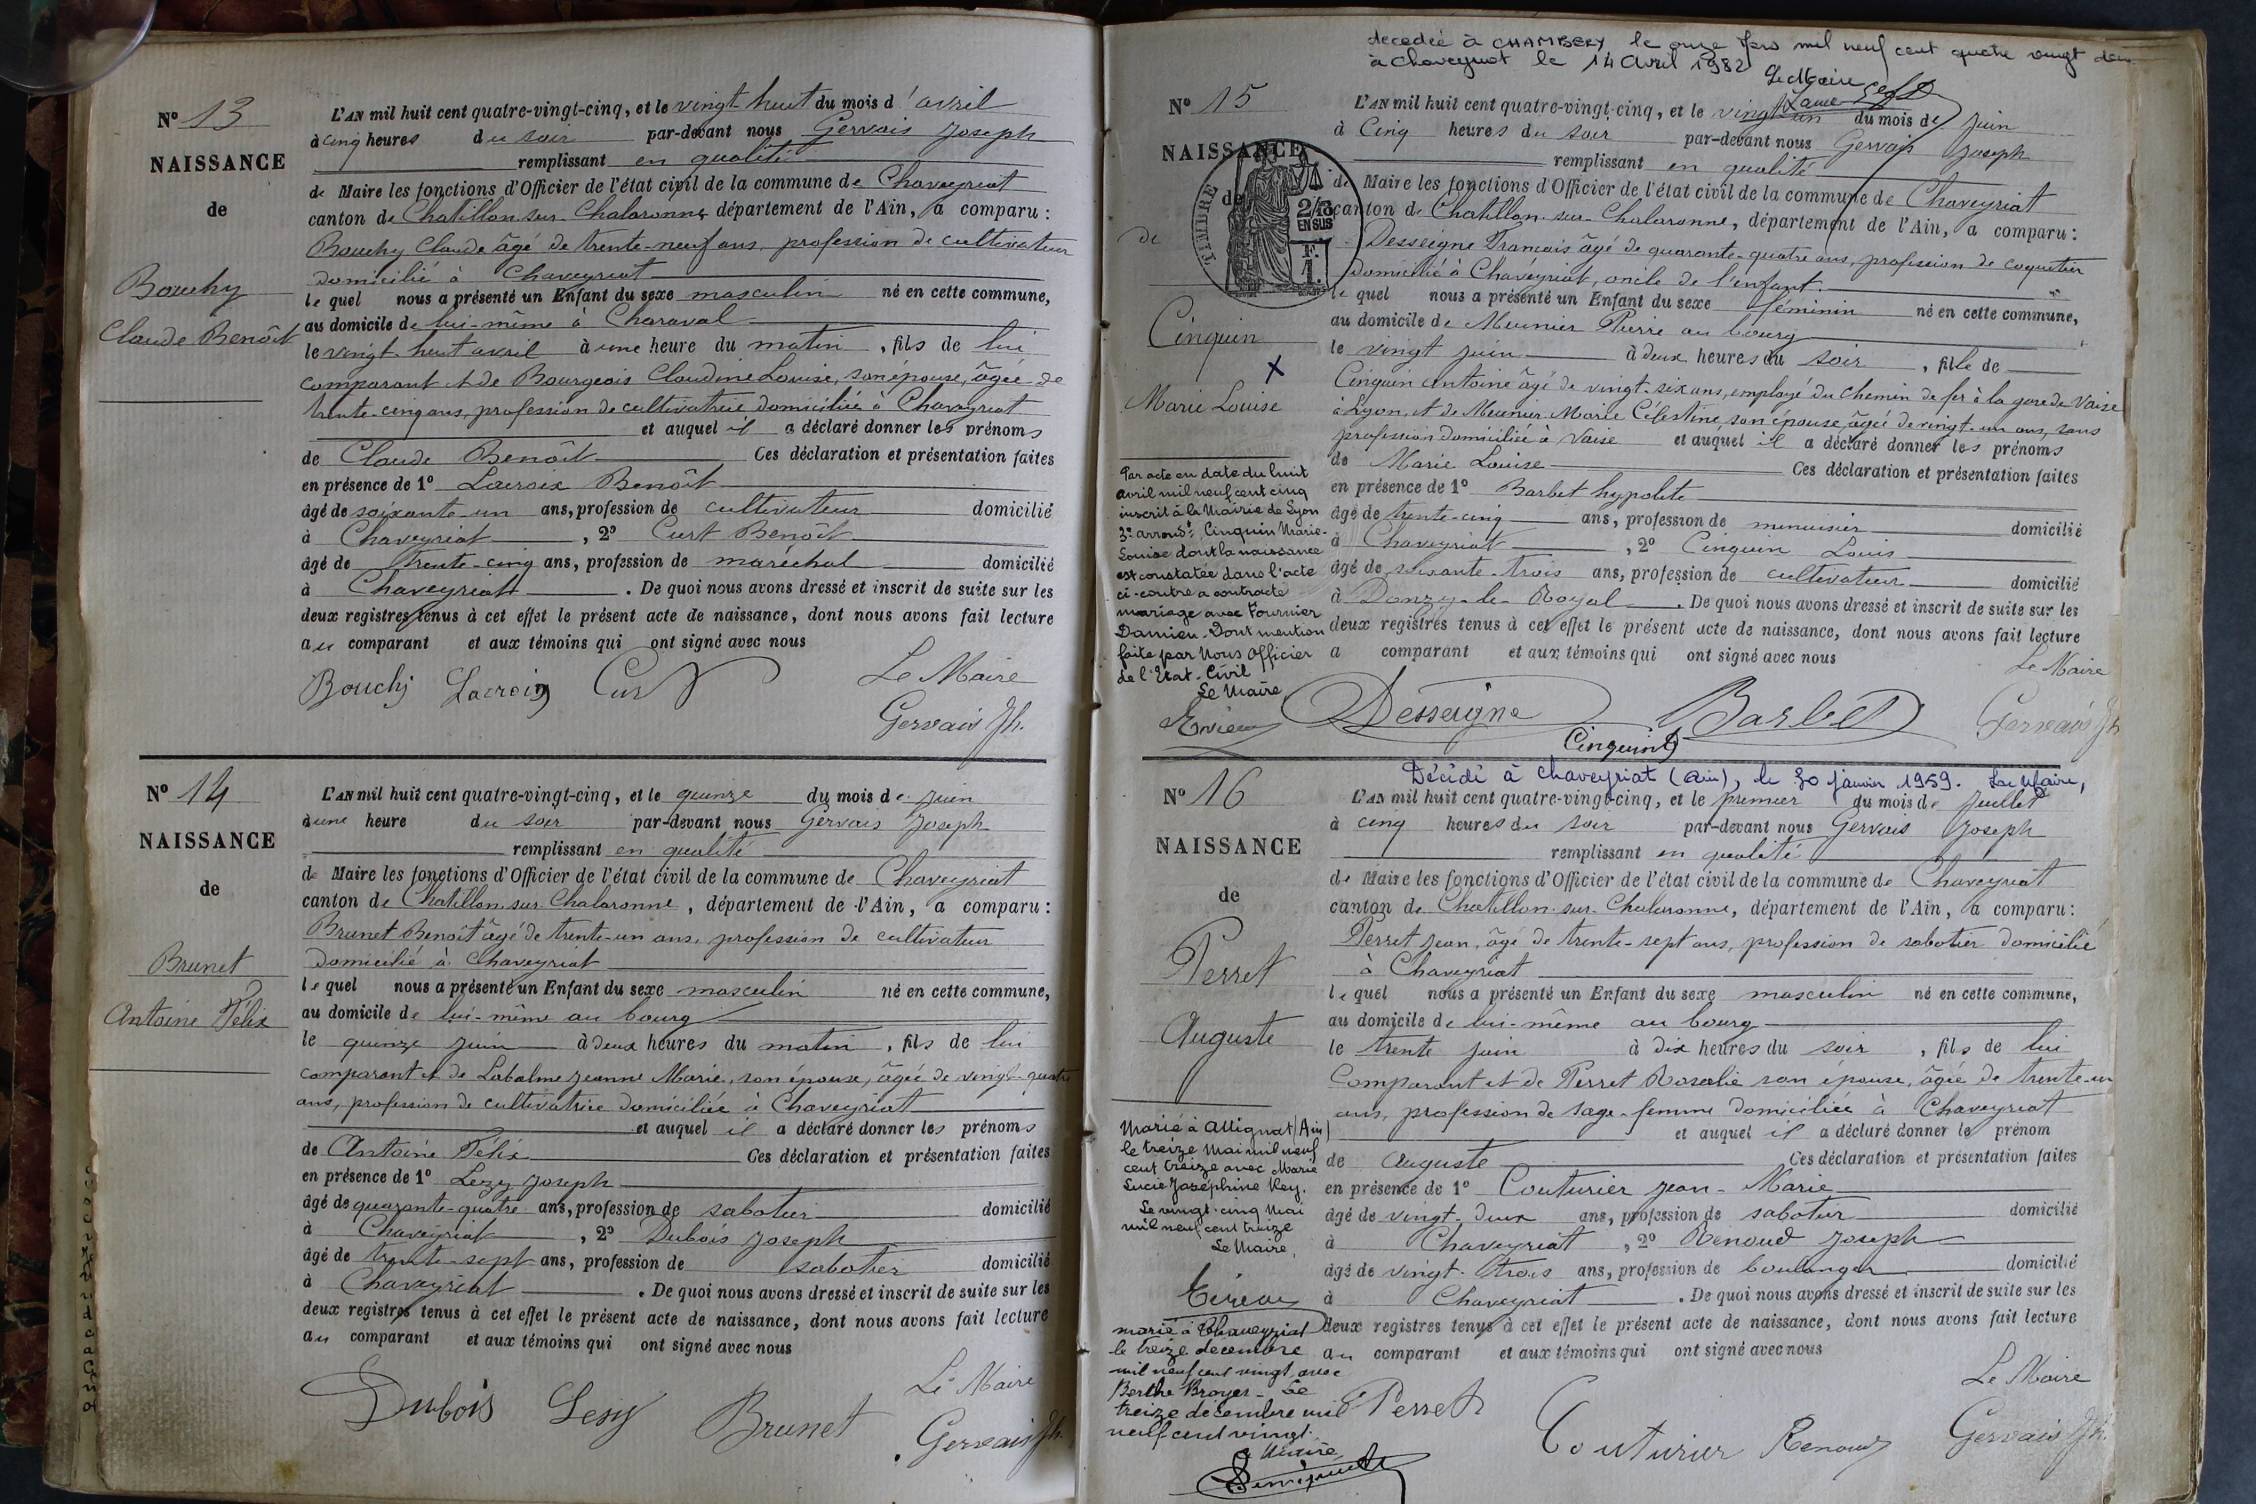 N° 13
NAISSANCE
de
Bouchy
Claude Benoît
L'AN mil huit cent quatre-vingt-cinq, et le vingt-huit du mois d'avril
à cinq heures du soir par-devant nous Gervais Joseph
remplissant en qualité
de Maire les fonctions d'Officier de l'état civil de la commune de Chaveyriat
canton de Chatillon-sur-Chalaronne, département de l'Ain, a comparu :
Bouchy Claude âgé de trente-neuf ans, profession de cultivateur
domicilié à Chaveyriat
lequel nous a présenté un Enfant du sexe masculin né en cette commune,
au domicile de lui-même à Charaval
le vingt-huit avril à une heure du matin, fils de lui
comparant et de Bourgeois Claudine Louise, son épouse, âgée de
trente-cinq ans, profession de cultivatrice domiciliée à Chaveyriat
et auquel il a déclaré donner les prénoms
de Claude Benoît Ces déclaration et présentation faites
en présence de 1° Lacroix Benoît
âgé de soixante-un ans, profession de cultivateur domicilié
à Chaveyriat, 2° Curt Benoît
âgé de trente-cinq ans, profession de maréchal domicilié
à Chaveyriat. De quoi nous avons dressé et inscrit de suite sur les
deux registres tenus à cet effet le présent acte de naissance, dont nous avons fait lecture
au comparant et aux témoins qui ont signé avec nous
Le Maire
Bouchy Lacroix Curt
Gervais Jh.
N° 14
NAISSANCE
de
Brunet
Antoine Félix
L'AN mil huit cent quatre-vingt-cinq, et le quinze du mois de juin
à une heure du soir par-devant nous Gervais Joseph
remplissant en qualité
de Maire les fonctions d'Officier de l'état civil de la commune de Chaveyriat
canton de Chatillon-sur-Chalaronne, département de l'Ain, a comparu :
Brunet Benoît âgé de trente-un ans, profession de cultivateur
domicilié à Chaveyriat
lequel nous a présenté un Enfant du sexe masculin né en cette commune,
au domicile de lui-même au bourg
le quinze juin à deux heures du matin, fils de lui
comparant et de Labalme Jeanne Marie, son épouse, âgée de vingt-quatre
ans, profession de cultivatrice domiciliée à Chaveyriat
et auquel il a déclaré donner les prénoms
de Antoine Félix Ces déclaration et présentation faites
en présence de 1° Lezy Joseph
âgé de quarante-quatre ans, profession de sabotier domicilié
à Chaveyriat, 2° Dubois Joseph
âgé de trente-sept ans, profession de sabotier domicilié
à Chaveyriat. De quoi nous avons dressé et inscrit de suite sur les
deux registres tenus à cet effet le présent acte de naissance, dont nous avons fait lecture
au comparant et aux témoins qui ont signé avec nous
Le Maire
Dubois Lesy Brunet
Gervais Jh.
décédée à CHAMBERY le onze mil neuf cent quatre vingt deux
à Chaveyriat le 14 Avril 1982
Le Maire
N° 15
NAISSANCE
de
TIMBRE
2/10 EN SUS
F. 1.
de
Cinquin
X
Marie Louise
L'AN mil huit cent quatre-vingt-cinq, et le vingt-un du mois de juin
à cinq heures du soir par-devant nous Gervais Joseph
remplissant en qualité
de Maire les fonctions d'Officier de l'état civil de la commune de Chaveyriat
canton de Chatillon-sur-Chalaronne, département de l'Ain, a comparu :
Desseigne François âgé de quarante-quatre ans, profession de coquetier
domicilié à Chaveyriat, oncle de l'enfant.
lequel nous a présenté un Enfant du sexe féminin né en cette commune,
au domicile de Meunier Pierre au bourg
le vingt juin à deux heures du soir, fille de
Cinquin Antoine âgé de vingt-six ans, employé du chemin de fer à la gare de Vaise
à Lyon, et de Meunier Marie Célestine, son épouse âgée de vingt-un ans, sans
profession domiciliée à Vaise et auquel il a déclaré donner les prénoms
de Marie Louise Ces déclaration et présentation faites
en présence de 1° Barbet hypolite
âgé de trente-cinq ans, profession de menuisier domicilié
à Chaveyriat, 2° Cinquin Louis
âgé de soixante-trois ans, profession de cultivateur domicilié
à Donzy-le-Royal. De quoi nous avons dressé et inscrit de suite sur les
deux registres tenus à cet effet le présent acte de naissance, dont nous avons fait lecture
a comparant et aux témoins qui ont signé avec nous
Le Maire
Par acte en date du huit
avril mil neuf cent cinq
inscrit à la Mairie de Lyon
3e arrondt, Cinquin Marie-
Louise dont la naissance
est constatée dans l'acte
ci-contre a contracté
mariage avec Fournier
Damien. Dont mention
faite par Nous Officier
de l'Etat-Civil
Le Maire
Desseigne Barbet Gervais Jh
Cinquin
Décédé à Chaveyriat (Ain), le 30 janvier 1959. Le Maire,
N° 16
NAISSANCE
de
Perret
Auguste
L'AN mil huit cent quatre-vingt-cinq, et le premier du mois de juillet
à cinq heures du soir par-devant nous Gervais Joseph
remplissant en qualité
de Maire les fonctions d'Officier de l'état civil de la commune de Chaveyriat
canton de Chatillon-sur-Chalaronne, département de l'Ain, a comparu :
Perret Jean, âgé de trente-sept ans, profession de sabotier domicilié
à Chaveyriat
lequel nous a présenté un Enfant du sexe masculin né en cette commune,
au domicile de lui-même au bourg
le trente juin à dix heures du soir, fils de lui
Comparant et de Perret Rosalie son épouse, âgée de trente-un
ans, profession de sage-femme domiciliée à Chaveyriat
et auquel il a déclaré donner le prénom
de Auguste Ces déclaration et présentation faites
en présence de 1° Couturier Jean-Marie
âgé de vingt-deux ans, profession de sabotier domicilié
à Chaveyriat, 2° Renoud Joseph
âgé de vingt-trois ans, profession de boulanger domicilié
à Chaveyriat. De quoi nous avons dressé et inscrit de suite sur les
deux registres tenus à cet effet le présent acte de naissance, dont nous avons fait lecture
au comparant et aux témoins qui ont signé avec nous
Le Maire
Marié à Attignat (Ain)
le treize Mai mil neuf
cent treize avec Marie
Lucie Joséphine Rey.
Le vingt-cinq Mai
mil neuf cent treize
Le Maire,
marié à Chaveyriat
le treize décembre
mil neuf cent vingt avec
Berthe Broyer - Le
treize décembre mil
neuf cent vingt.
Le Maire
Perret Couturier Renoud Gervais Jh.